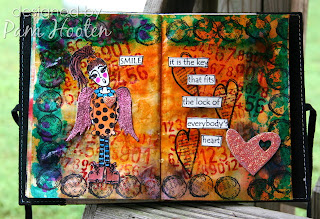 designed by
Pam Hooten
SMILE
it is the key
that fits
the lock of
everybody's
heart